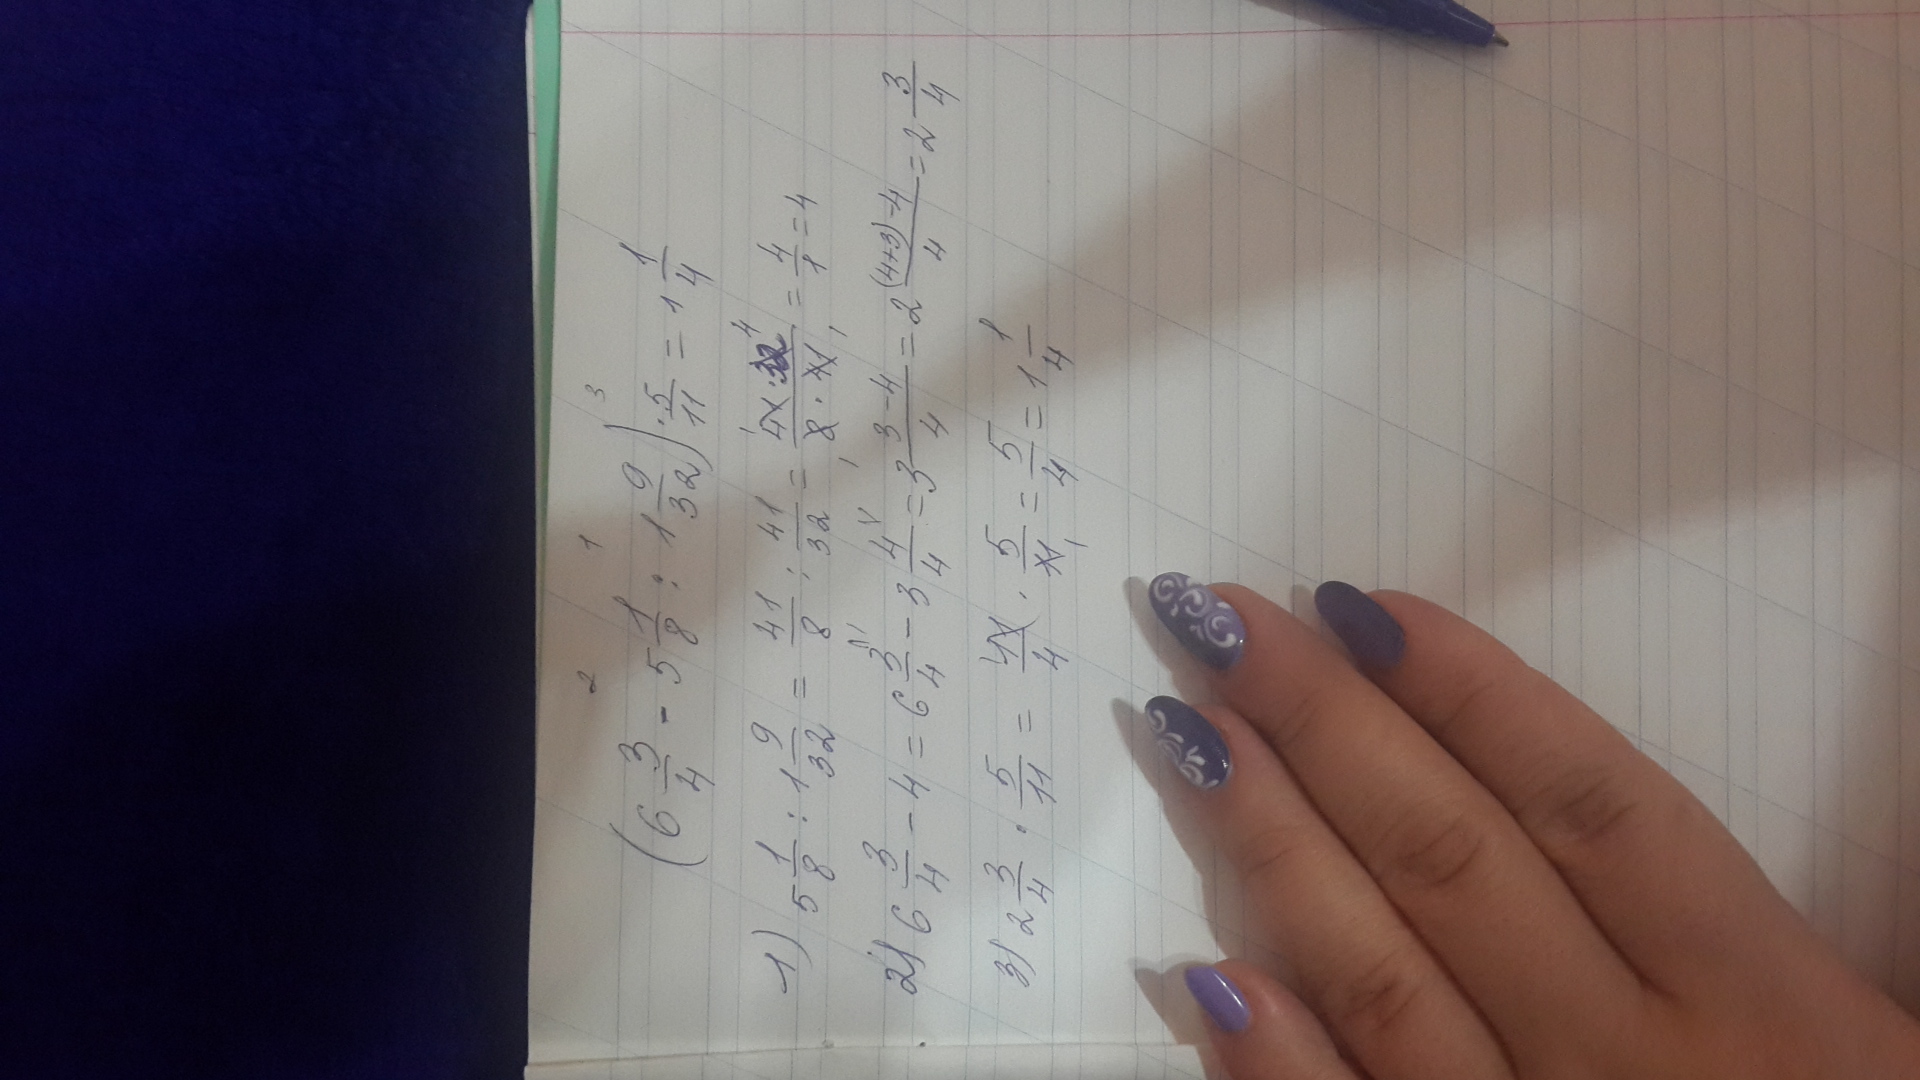 2 1 3
(6 3/4 - 5 1/8 : 1 9/32) · 5/11 = 1 1/4
1) 5 1/8 : 1 9/32 = 41/8 : 41/32 = 41 · 32/8 · 41 = 4/1 = 4
2) 6 3/4 - 4 = 6 3/4 - 3 4/4 = 3 3-4/4 = 2 (4+3)-4/4 = 2 3/4
3) 2 3/4 · 5/11 = 11/4 · 5/11 = 5/4 = 1 1/4